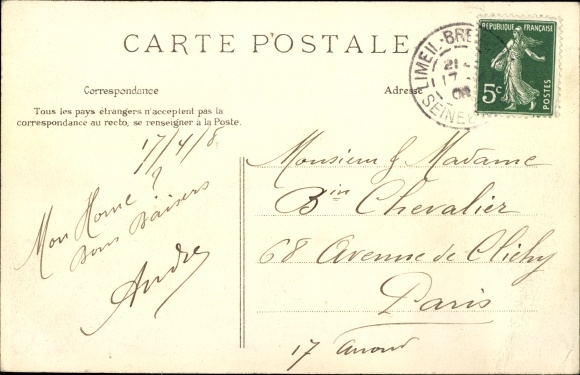 CARTE POSTALE
Correspondance
Adresse
Tous les pays étrangers n'acceptent pas la
correspondance au recto, se renseigner à la Poste.
RÉPUBLIQUE FRANÇAISE
5c
POSTES
LIMEIL-BRE
21
17
SEINE
17/4/8
Mon Home ?
Bons Baisers
André
Monsieur & Madame
Bin Chevalier
68 Avenue de Clichy
Paris
17 arrond